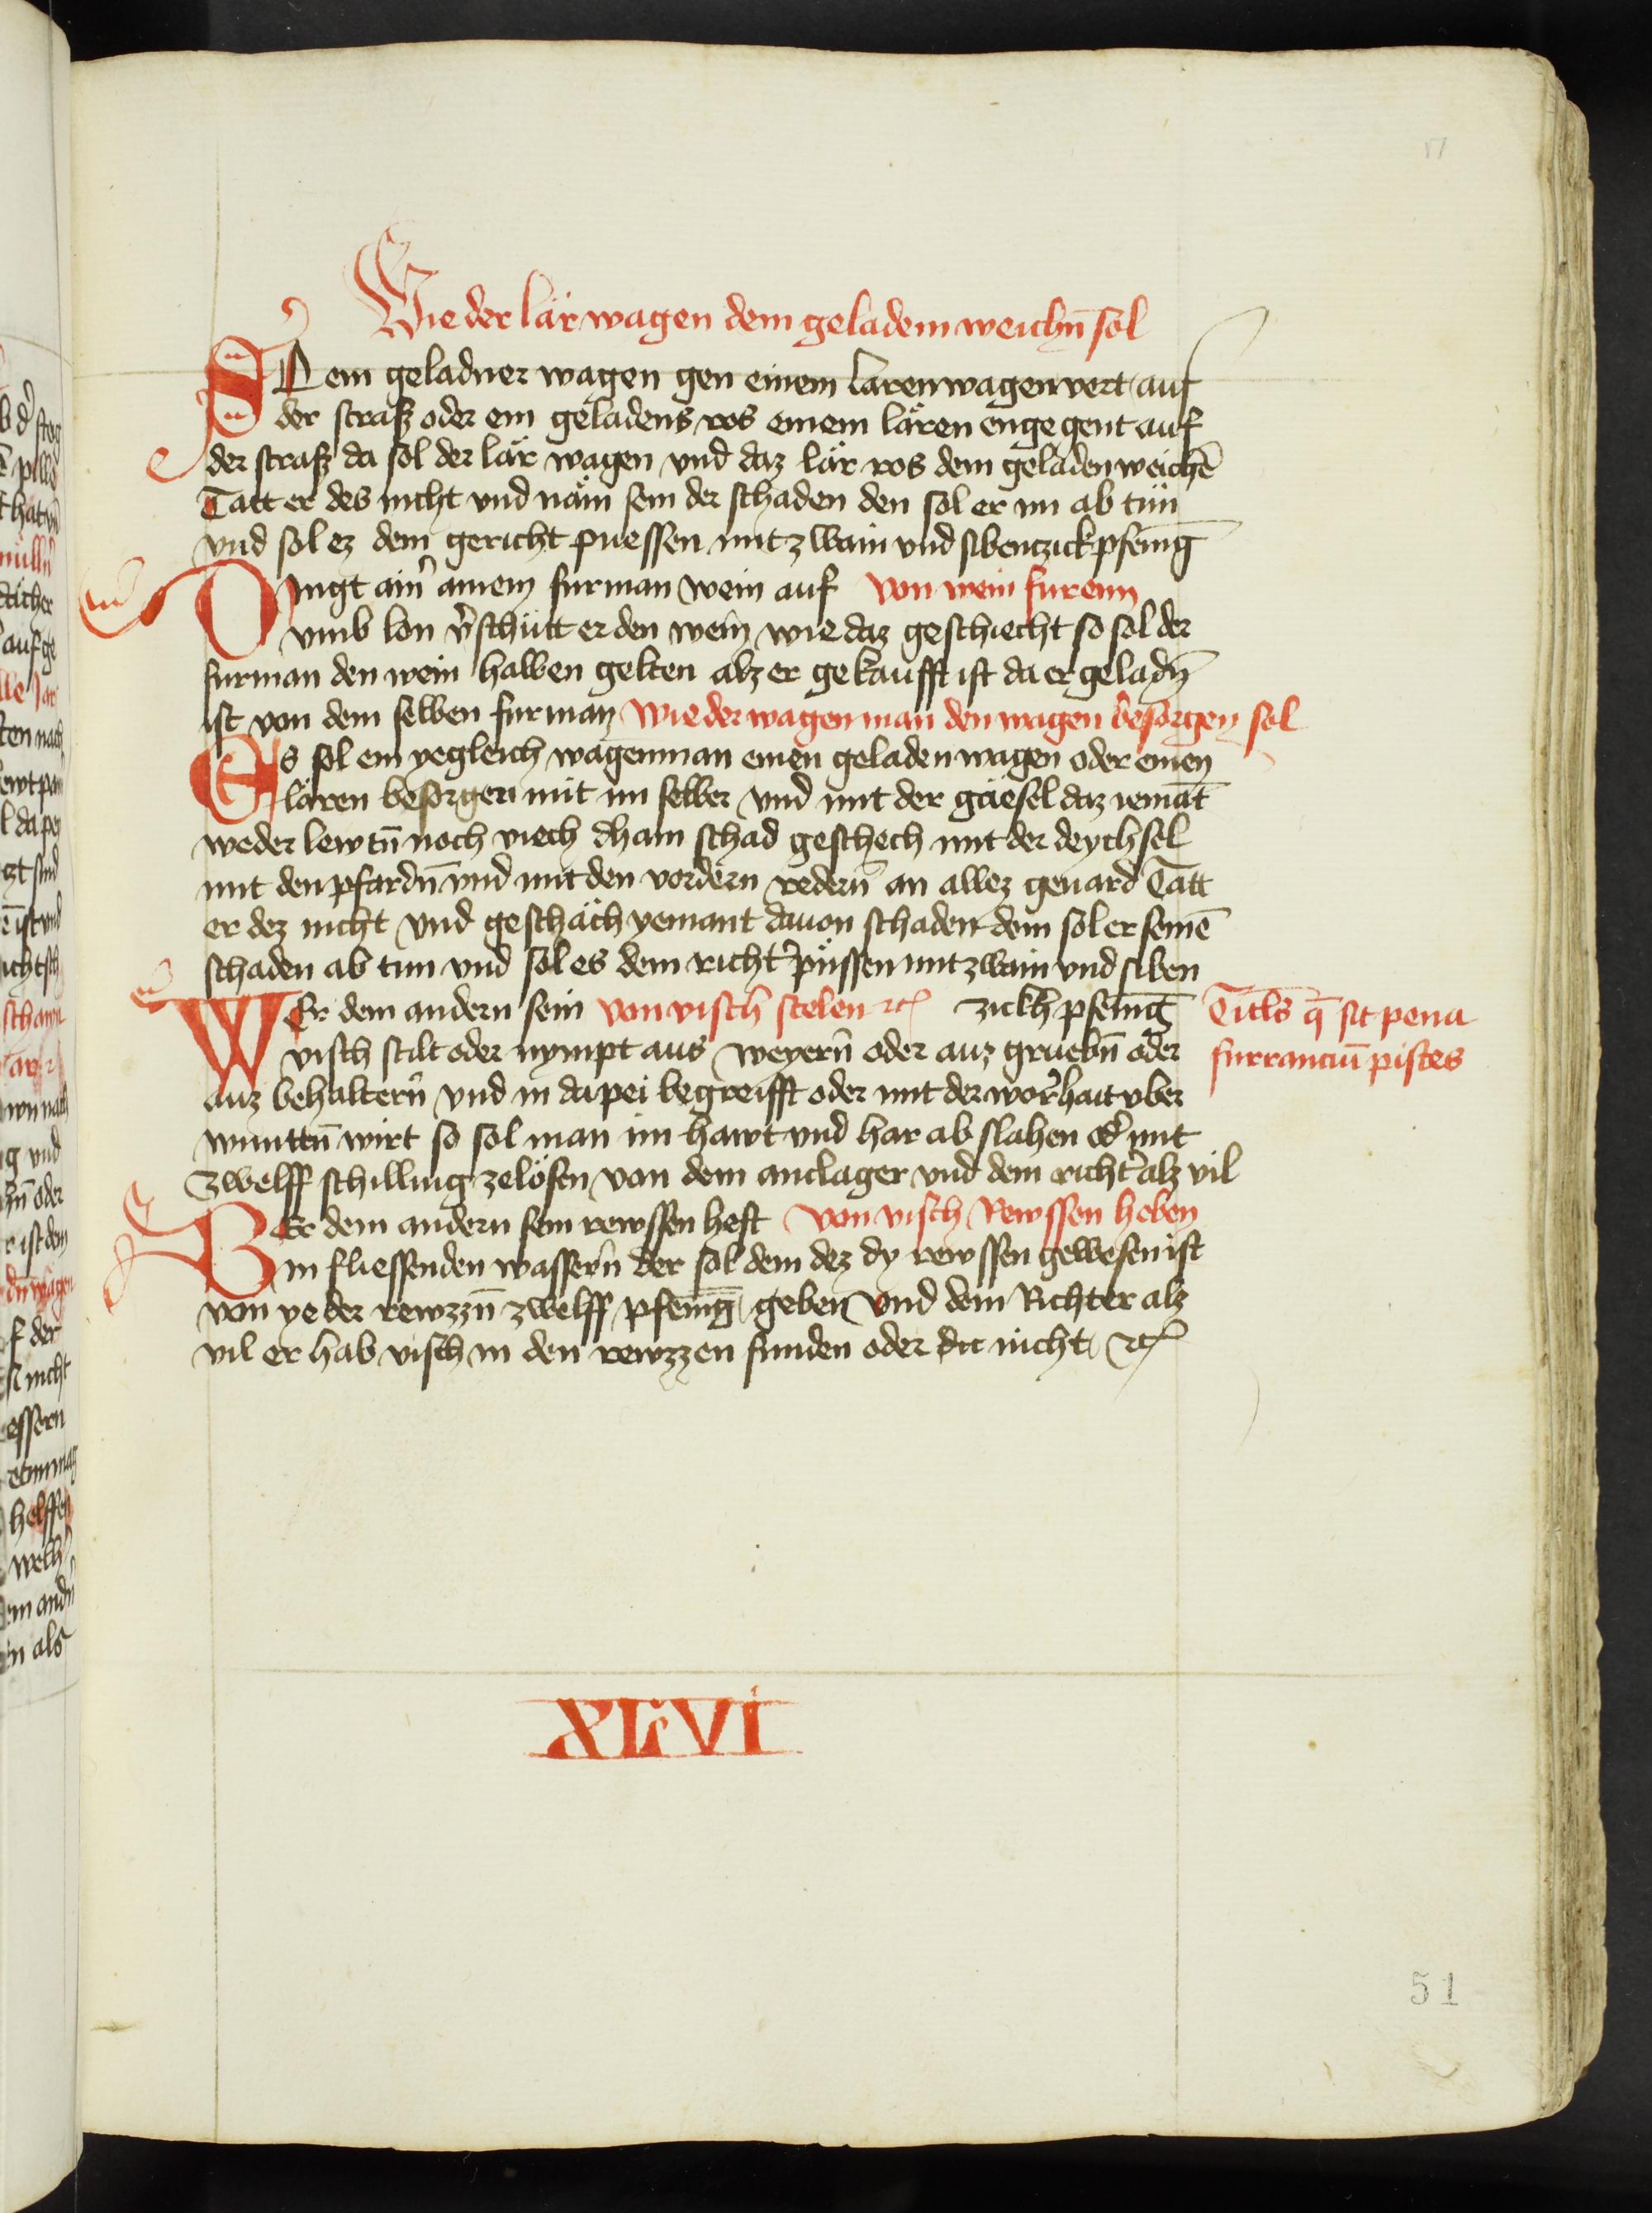 51
Wie der lär wagen dem geladem weichn̄ sol
SO ein geladner wagen gen einem lären wagen vert auf
der straß oder ein geladens ros einem lären engegent auf
der straß da sol der lär wagen vnd daz lär ros dem geladen weichē
Tätt er des nicht vnd näm sein der schaden den sol er im ab tün
vnd sol ez dem gericht puessen mit zwain vnd sibenczick pfēnīg
DIngt ain̄ ainem furman wein auf Von wein furenn
vmb lon v̄schütt er den wein wie daz geschiecht so sol der
furman den wein halben gelten alz er gekaufft ist da er geladn̄
ist von dem selben furman Wie der wagen man den wagen besorgen sol
ES sol ein yegleich wagenman einen geladen wagen oder einen
lären besorgen mit im selber vnd mit der gäesel daz iemāt
weder lewtn̄ noch viech dhain schad geschech mit der deychsel
mit den pfärdn̄ vnd mit den vordern redern̄ an allez geuärd Tätt
er dez nicht vnd geschäch yemant dauon schaden dem sol er seinē
schaden ab tun vnd sol es dem richt̄ püssen mit zwain vnd siben
WEr dem andern sein Von visch stelen ⁊c̄ zickh pfēnīg
Titl̄s q̄ sit pena
furranciū pistes
visch stilt oder nympt aus weyern̄ oder auz gruebn̄ oder
auz behaltern̄ vnd in da pei begreifft oder mit der wor̄hait vber
wunttn̄ wirt so sol man im hawt vnd har ab slahen od̄ mit
Zwelff schilling zelösen von dem anclager vnd dem richt̄ alz vil
WEr dem andern sein rewssen heft Von visch Rewssen heben
in fliessenden wassern̄ der sol dem dez dy rewssen gewesen ist
von yeder rewzzn̄ zwelff pfēnīg geben vnd dem Richter alz
vil er hab visch in den rewzzen funden oder nicht ⁊c̄
XLVI
51